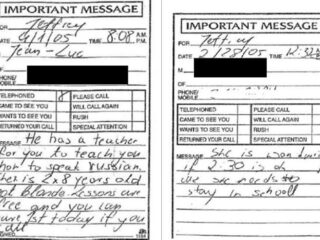 IMPORTANT MESSAGE
FOR Jeffrey
DATE 4/1/05 TIME 8:08 A.M. P.M.
M Jean-Luc
OF
PHONE/
MOBILE
TELEPHONED PLEASE CALL
CAME TO SEE YOU WILL CALL AGAIN
WANTS TO SEE YOU RUSH
RETURNED YOUR CALL SPECIAL ATTENTION
MESSAGE He has a teacher
for you to teach you
how to speak russian.
2x8 years old
Lessons are
free and you can
1st today if you
call
IMPORTANT MESSAGE
FOR Jeffrey
DATE 2/28/05 TIME
M
OF
PHONE/
MOBILE
TELEPHONED PLEASE CALL
CAME TO SEE YOU WILL CALL AGAIN
WANTS TO SEE YOU RUSH
RETURNED YOUR CALL SPECIAL ATTENTION
MESSAGE She is
if 2:30 is ok
she needs to
stay in school